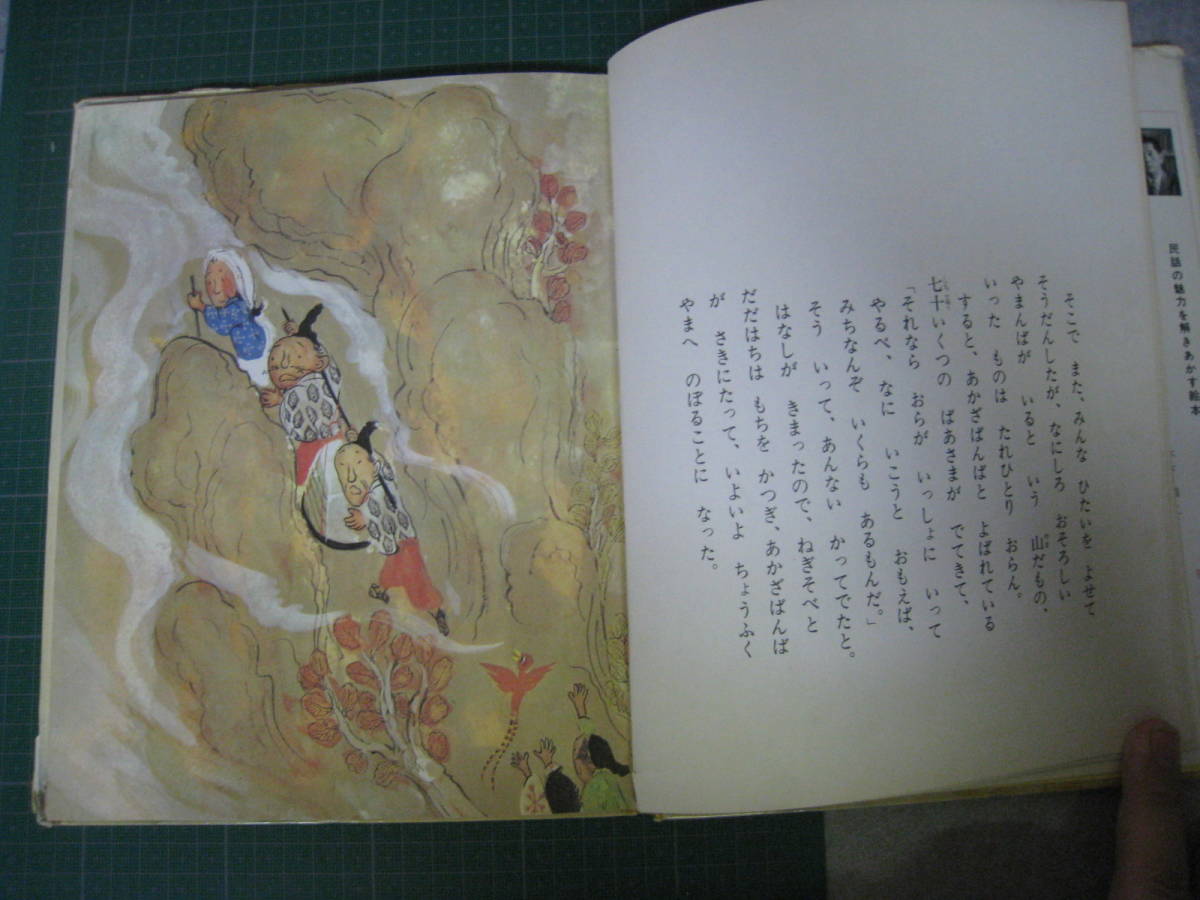 そこで また、みんな ひたいを よせて
そうだんしたが、なにしろ おそろしい
やまんばが いると いう 山だもの、
いった ものは たれひとり おらん。
すると、あかざばんばと よばれている
七十いくつの ばあさまが でてきて、
「それなら おらが いっしょに いって
やるべ、なに いこうと おもえば、
みちなんぞ いくらも あるもんだ。」
そう いって、あんない かってでたと。
はなしが きまったので、ねぎそべと
だだはちは もちを かつぎ、あかざばんば
が さきにたって、いよいよ ちょうふく
やまへ のぼることに なった。
民話の魅力を解きあかす絵本